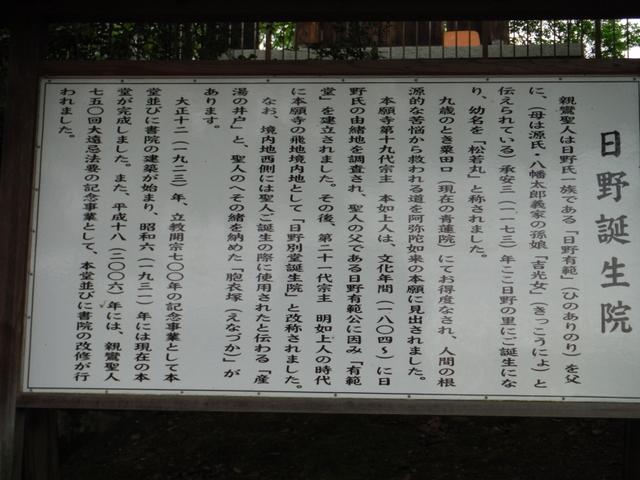 日野誕生院
親鸞聖人は日野氏一族である「日野有範」(ひのありのり)を父
に、(母は源氏・八幡太郎義家の孫娘「吉光女」(きっこうによ)と
伝えられている)承安三(一一七三)年ここ日野の里にご誕生にな
り、幼名を「松若丸」と称されました。
九歳のとき粟田口(現在の青蓮院)にてお得度なされ、人間の根
源的な苦悩から救われる道を阿弥陀如来の本願に見出されました。
本願寺第十九代宗主 本如上人は、文化年間(一八〇四～)に日
野氏の由緒地を調査され、聖人の父である日野有範公に因み「有範
堂」を建立されました。その後、第二十一代宗主 明如上人の時代
に本願寺の飛地境内地として「日野別堂誕生院」と改称されました。
なお、境内地西側には聖人ご誕生の際に使用されたと伝わる「産
湯の井戸」と、聖人のへその緒を納めた「胞衣塚(えなづか)」が
あります。
大正十二(一九二三)年、立教開宗七〇〇年の記念事業として本
堂並びに書院の建築が始まり、昭和六(一九三一)年には現在の本
堂が完成しました。また、平成十八(二〇〇六)年には、親鸞聖人
七五〇回大遠忌法要の記念事業として、本堂並びに書院の改修が行
われました。